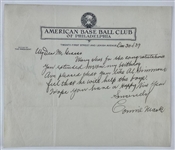 AMERICAN BASE BALL CLUB
OF PHILADELPHIA
My Dear Mr
Many thanks for the congratulations
you extended to me on my birthday
Am pleased that you like
feel that he will help the boys
Hope you have a Happy New Year
Sincerely
Connie Mack